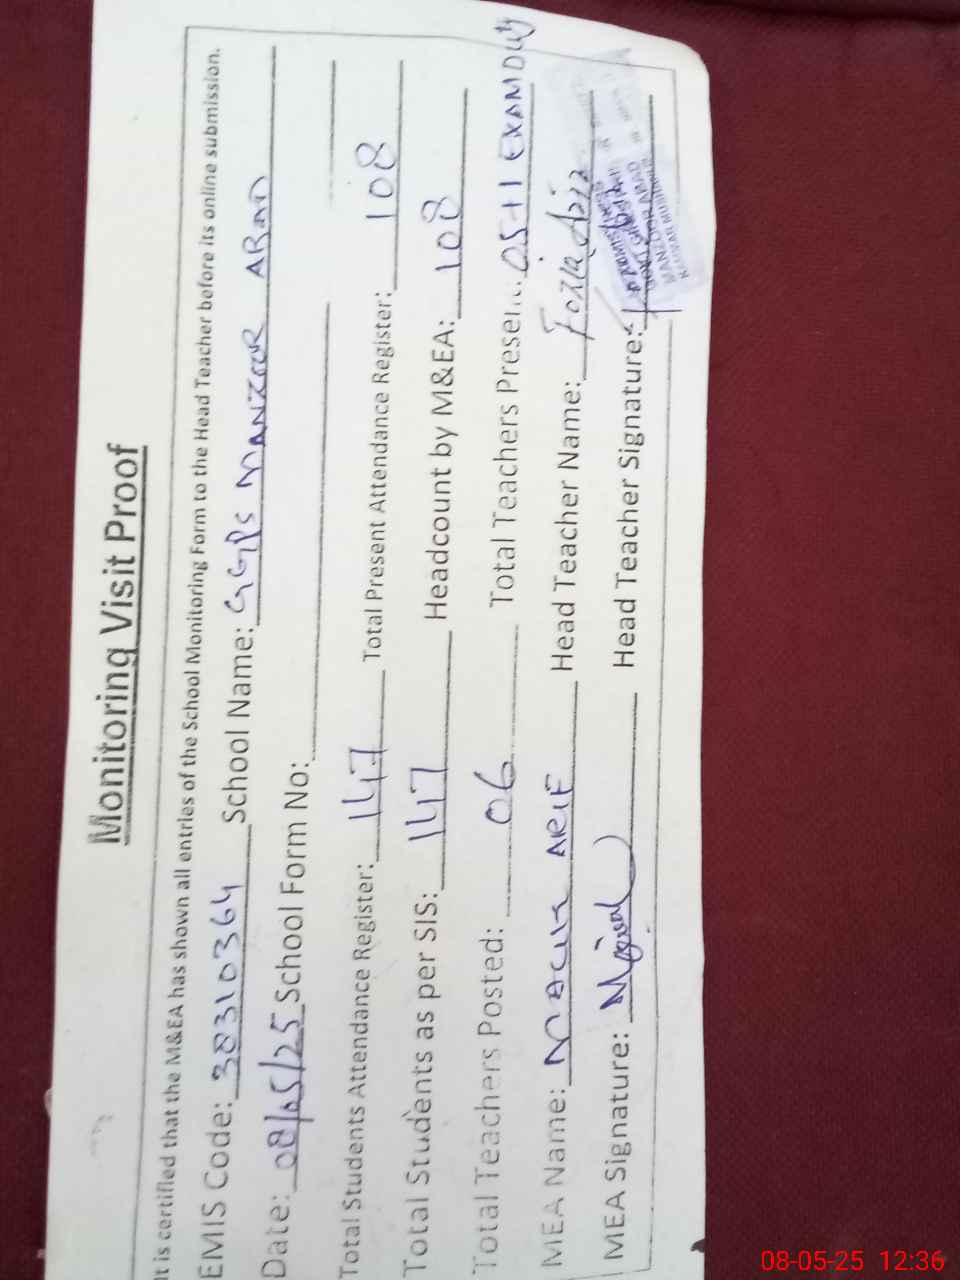 Monitoring Visit Proof
It is certified that the M&EA has shown all entries of the School Monitoring Form to the Head Teacher before its online submission.
EMIS Code: 38310364 School Name: GGPS MANZOOR ABAD
Date: 08/05/25 School Form No:
Total Students Attendance Register: 147 Total Present Attendance Register: 108
Total Students as per SIS: 147 Headcount by M&EA: 108
Total Teachers Posted: 06 Total Teachers Present: 05+1 EXAM Duty
MEA Name: ARIF Head Teacher Name: Fozia
MEA Signature: Head Teacher Signature:
MANZOOR ABAD
08-05-25 12:36